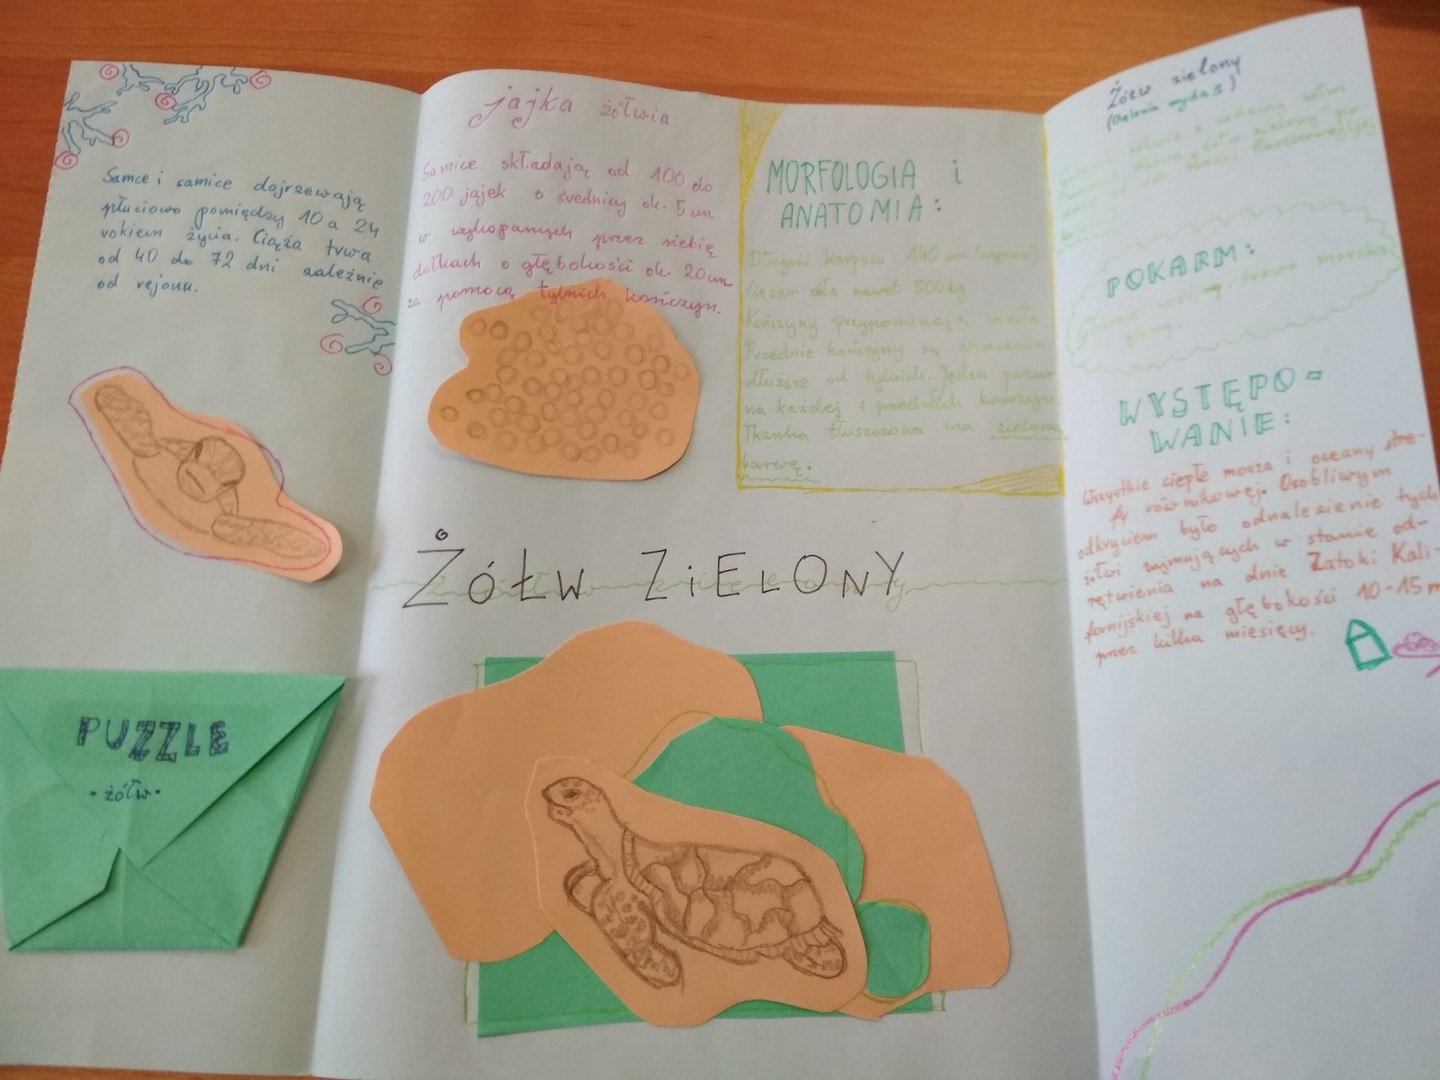 Samce i samice dojrzewają
płciowo pomiędzy 10 a 24
rokiem życia. Ciąża trwa
od 40 do 72 dni zależnie
od rejonu.
PUZZLE
• żółw •
jajka żółwia
Samice składają od 100 do
200 jajek o średnicy ok. 5 cm
w wykopanych przez siebie
dołkach o głębokości ok. 20 cm
za pomocą tylnich kończyn.
MORFOLOGIA i
ANATOMIA:
Długość karpasu: 140 cm
Ciężar ciała nawet 500 kg
Kończyny przypominają wiosła
Przednie kończyny są znacznie
dłuższe od tylnich. Jeden pazur
na każdej z przednich kończyn
Tkanka tłuszczowa ma zieloną
barwę.
ŻÓŁW ZiELONY
Żółw zielony
(Chelonia mydas)
POKARM:
trawa morska
glony.
WYSTĘPO-
WANIE:
Wszystkie ciepłe morza i oceany stre-
fy równikowej. Osobliwym
odkryciem było odnalezienie tych
żółwi zajmujących w stanie od-
rętwienia na dnie Zatoki Kali-
fornijskiej na głębokości 10-15m
przez kilka miesięcy.